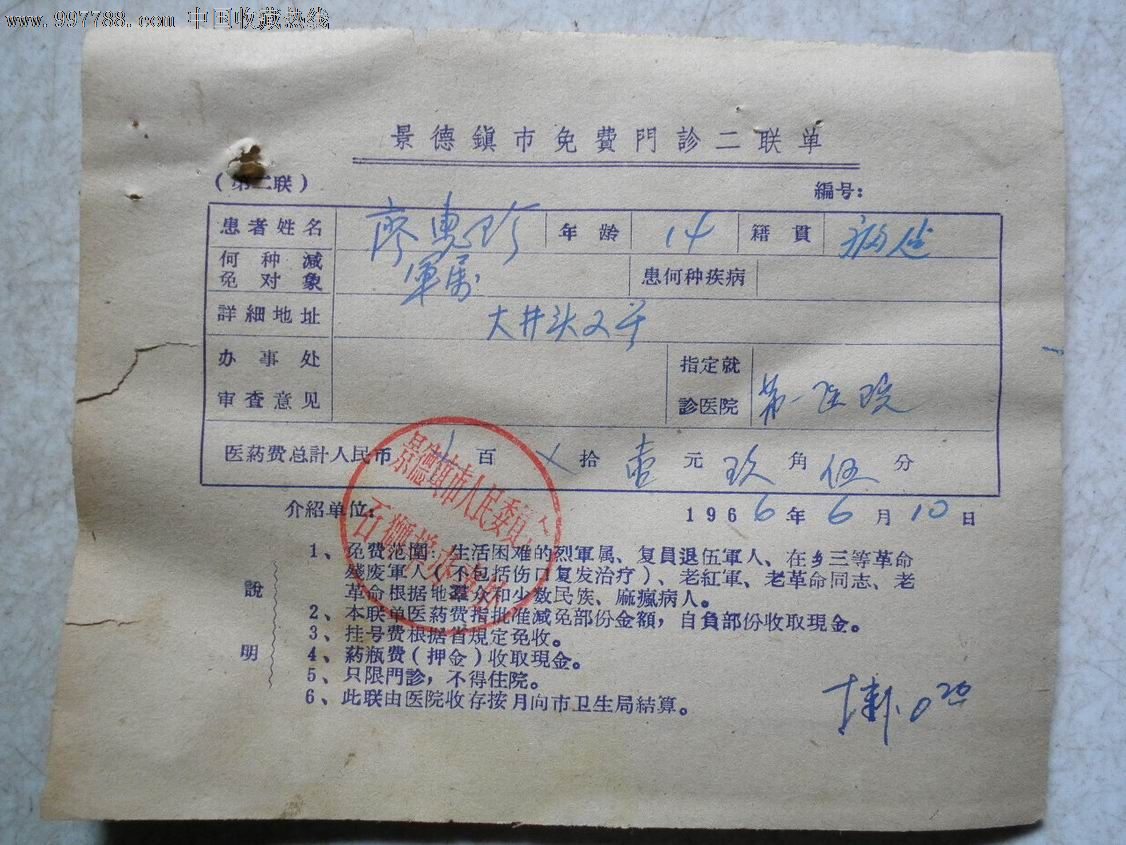 www.997788.com 中国收藏热线
景德鎮市免費門診二联单
(第二联) 編号:
患者姓名 廖惠珍 年龄 14 籍貫
何种减免对象 軍属 患何种疾病
詳細地址 大井头
办事处审查意见 指定就診医院 第一医院
医葯費总計人民币 百 拾 壹元玖角伍分
介紹单位: 1966年6月10日
説明
1、免費范圍:生活困难的烈軍属、复員退伍軍人、在乡三等革命
殘废軍人(不包括伤口复发治疗)、老紅軍、老革命同志、老
革命根据地羣众和少数民族、麻瘋病人。
2、本联单医葯費指批准减免部份金額,自負部份收取現金。
3、挂号費根据省規定免收。
4、葯瓶費(押金)收取現金。
5、只限門診,不得住院。
6、此联由医院收存按月向市卫生局結算。
景德鎮市人民委員